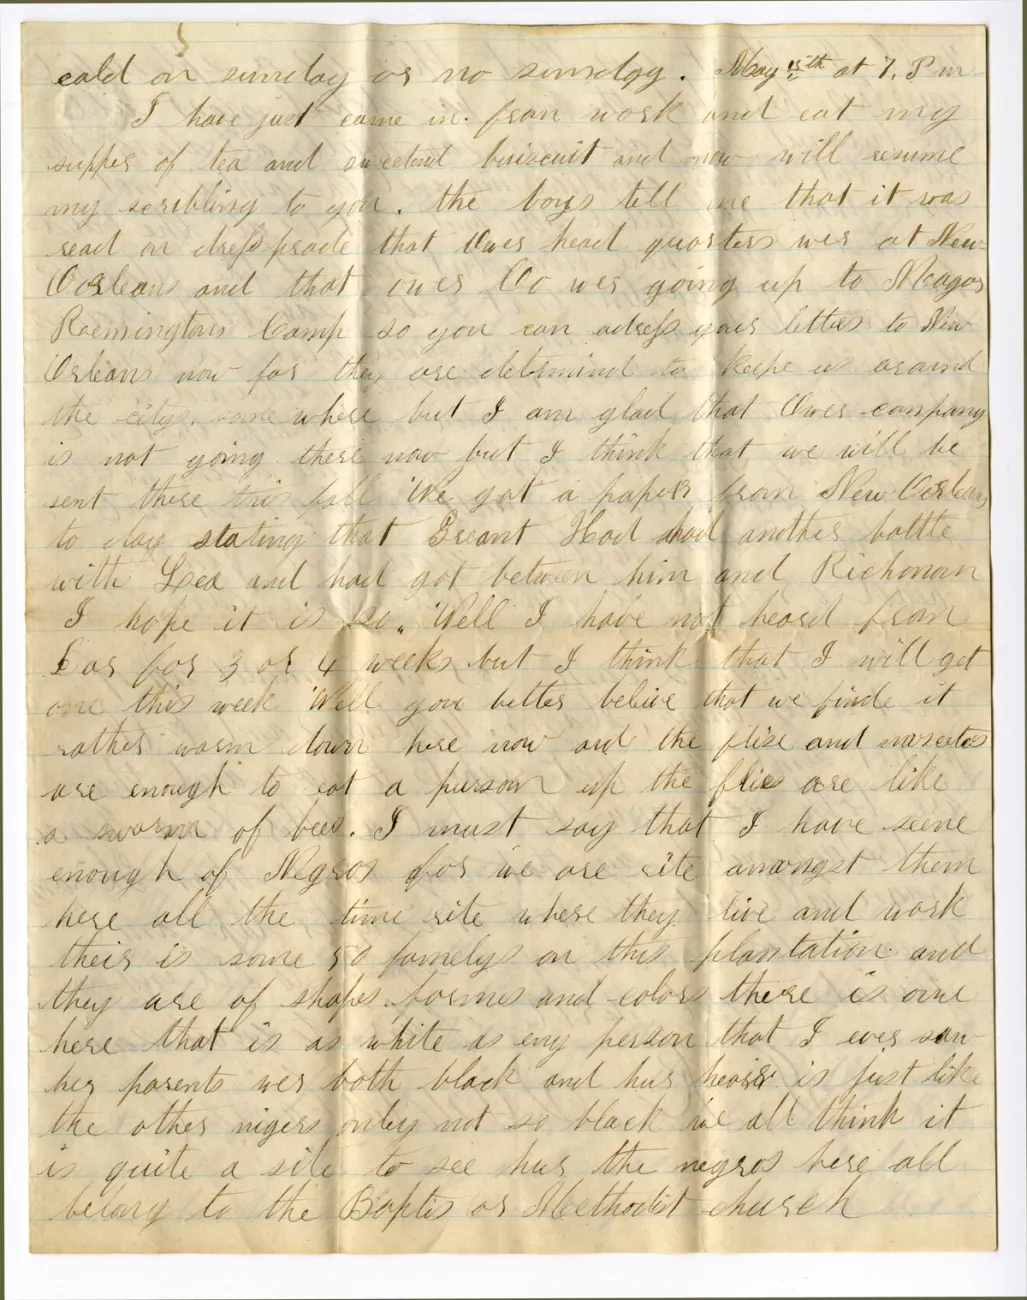 cald on sunday or no sunday. May 15th at 7, P m
I have just came in. from work and eat my
supper of tea and sweetend buiscuit and now will resume
my scribling to you. the boys tell me that it was
read on dress prade that Ower head quarters wer at New
Oorleans and that ower Co wer going up to Meagor
Raemingtons Camp so you can adress your letters to New
Orleans now for they are detirmind to keepe us around
the city. some where but I am glad that Ower company
is not going there now but I think that we will be
sent there this fall We got a paper from New Oorleans
to day stating that Greant Had had another battle
with Lea and had got between him and Richmon
I hope it is so,, Well I have not heard from
for 3 or 4 weeks but I think that I will get
one this week Well you better belive that we finde it
rather warm down here now and the flise and insects
are enough to eat a purson up the flies are like
a swarm of bees. I must say that I have seene
enough of Negros for we are rite amongst them
here all the time rite where they live and work
their is some 50 famelys on this plantation. and
they are of shapes formes and colors there is one
here that is as white as eny person that I ever saw
her parents wer both black and hur hear is just like
the other nigers only not so black we all think it
is quite a site to see hur the negros here all
belong to the Baptis or Methodist church